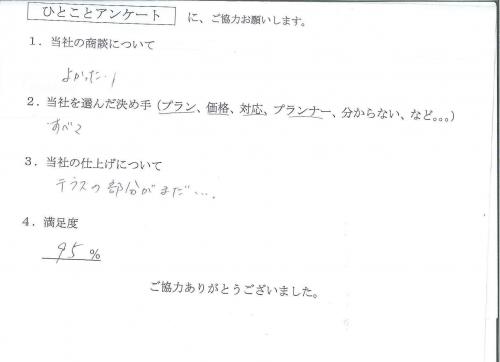 ひとことアンケート に、ご協力お願いします。
1．当社の商談について
よかった！
2．当社を選んだ決め手（プラン、価格、対応、プランナー、分からない、など。。。）
すべて
3．当社の仕上げについて
テラスの部分がまだ….
4．満足度
95 %
ご協力ありがとうございました。